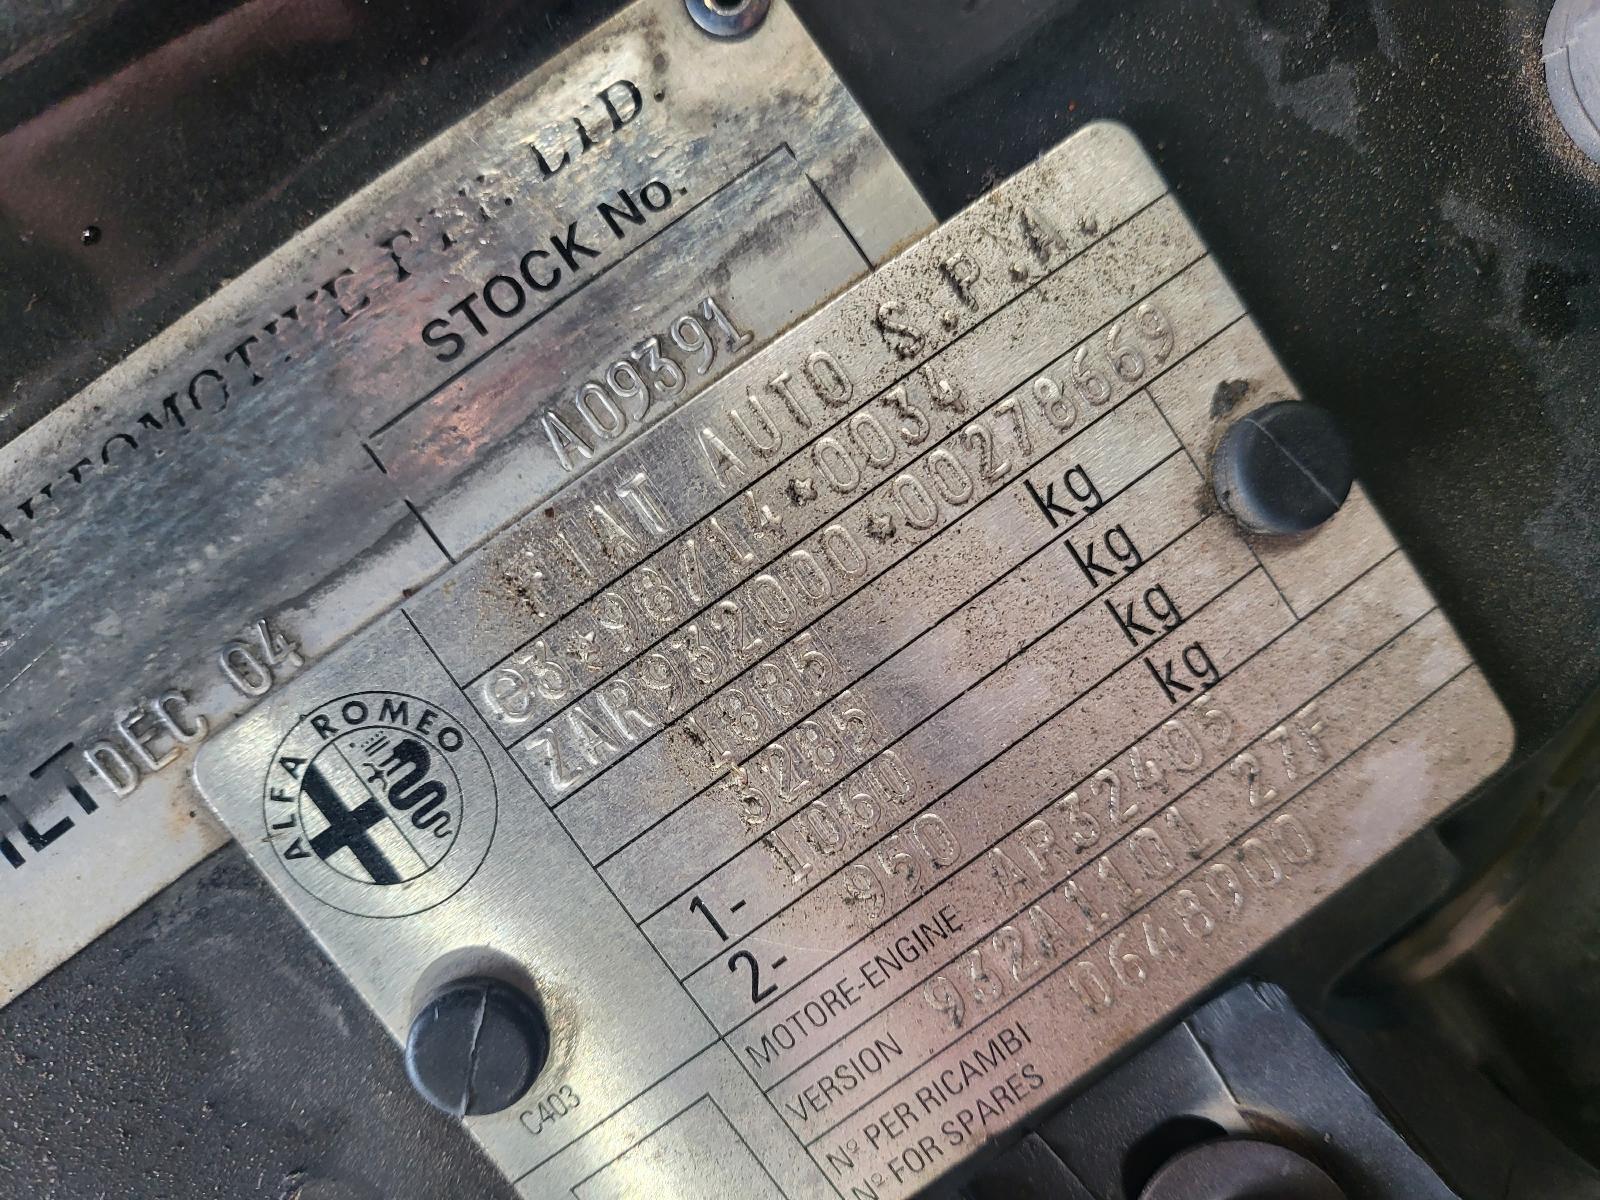 AUTOMOTIVE PTY. LTD.
STOCK No.
A09391
ILT DEC 04
FIAT AUTO S.P.A.
e3*98/14*0034
ZAR93200000278669
1885 kg
3285 kg
1- 1060 kg
2- 950 kg
ALFA ROMEO
MOTORE-ENGINE AR32405
VERSION 932A1101 27F
Nº PER RICAMBI 0648900
Nº FOR SPARES
C403